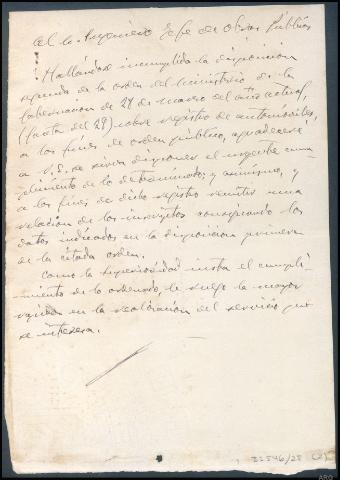 Al Sr. Ingeniero Jefe de Obras Públicas
Hallándose incumplida la disposición
segunda de la orden del Ministerio de la
Gobernación de 27 de marzo del año actual,
(Gaceta del 29) sobre registro de automóviles,
a los fines de orden público, agradeceré
a V.S. se sirva disponer el urgente cum-
plimiento de lo determinado; y asimismo, y
a los fines de dicho registro remitir una
relación de los inscritos consignando los
datos indicados en la disposición primera
de la citada orden.
Como la superioridad insta el cumpli-
miento de lo ordenado, le ruego la mayor
rapidez en la realización del servicio que
se interesa.
32546/25 (2)
ARQ